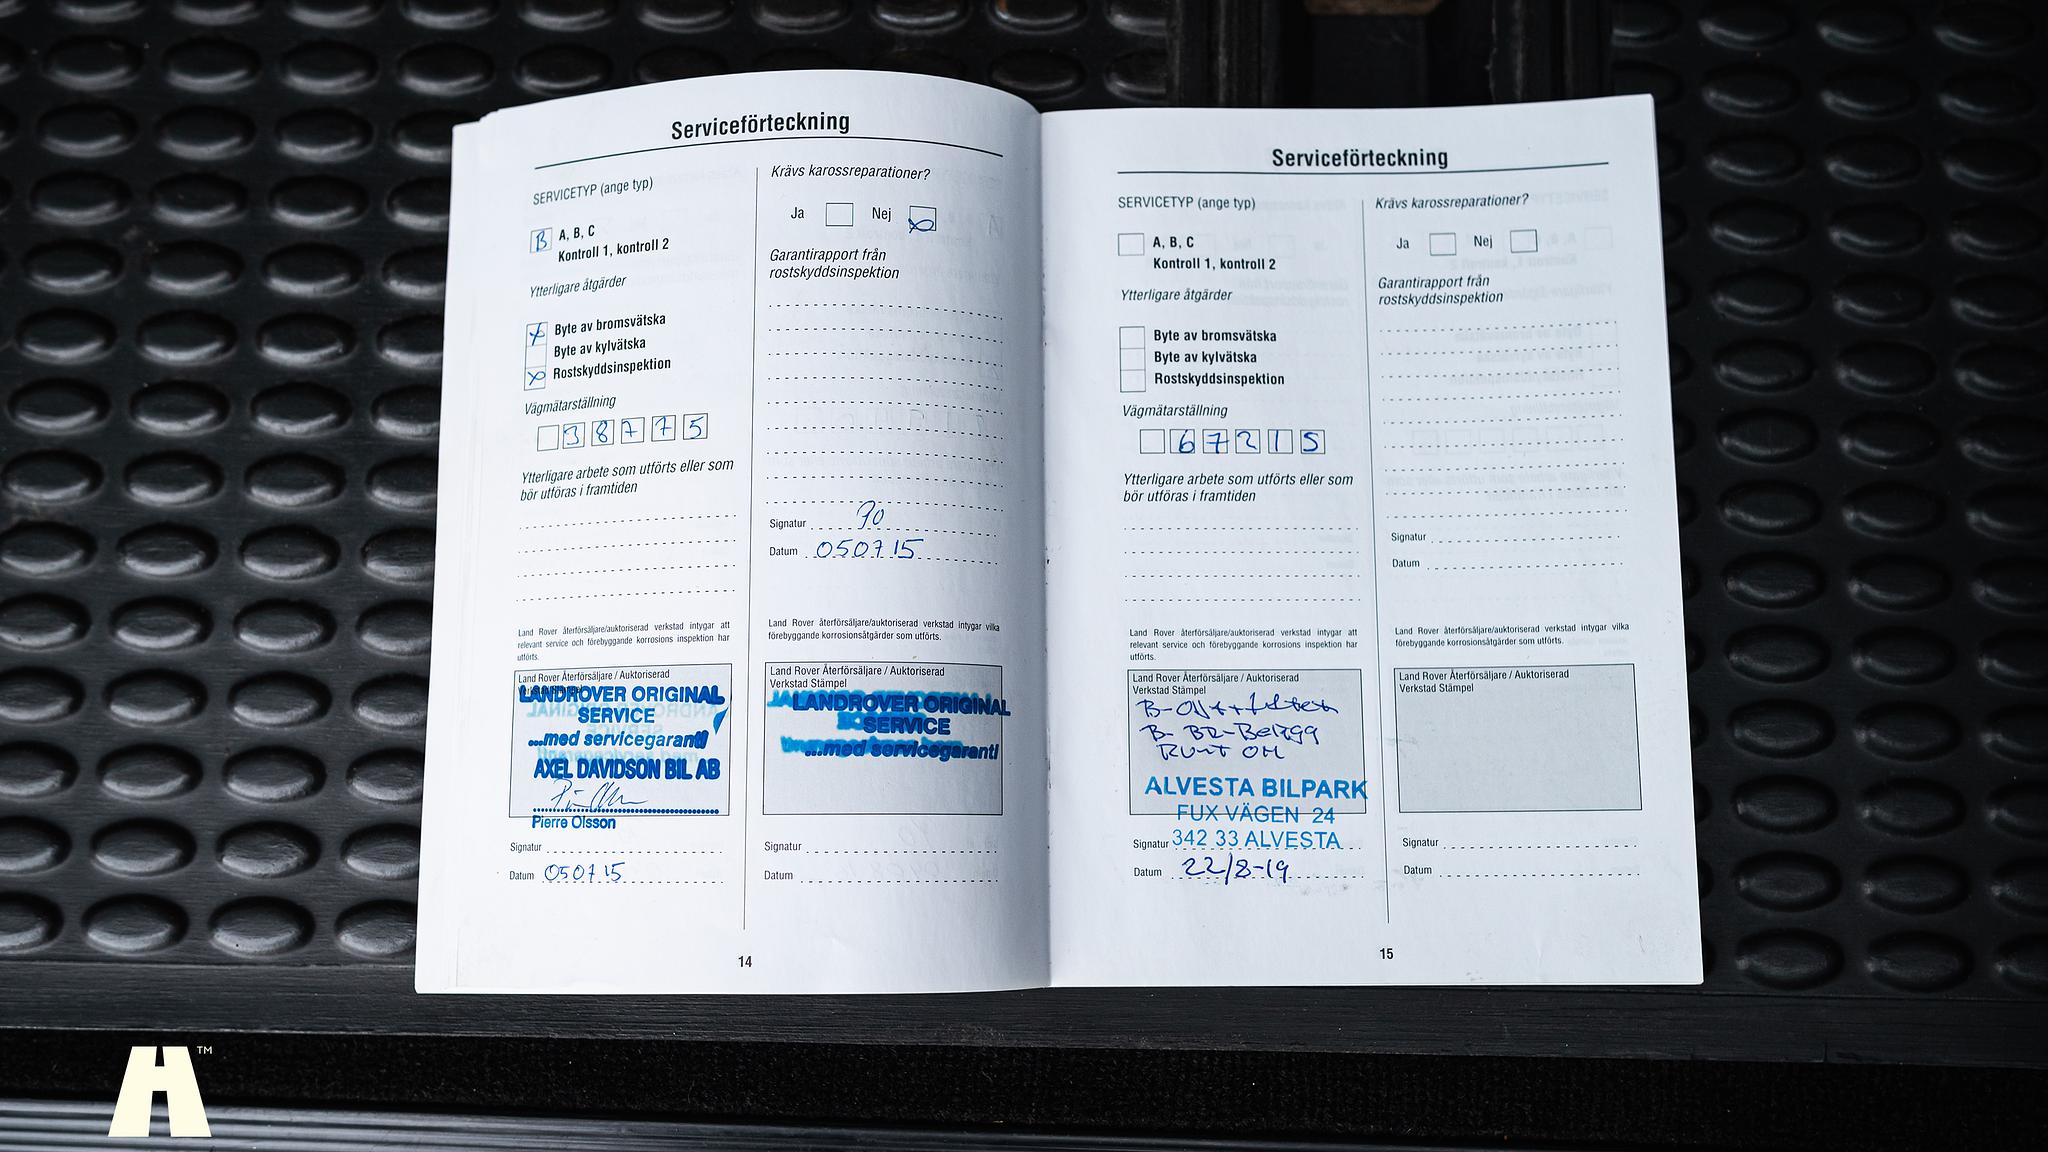 Serviceförteckning
SERVICETYP (ange typ)
B
A, B, C
Kontroll 1, kontroll 2
Ytterligare åtgärder
x Byte av bromsvätska
Byte av kylvätska
x Rostskyddsinspektion
Vägmätarställning
38775
Ytterligare arbete som utförts eller som
bör utföras i framtiden
Land Rover återförsäljare/auktoriserad verkstad intygar att
relevant service och förebyggande korrosions inspektion har
utförts.
Land Rover Återförsäljare / Auktoriserad
Verkstad Stämpel
LANDROVER ORIGINAL
SERVICE
...med servicegaranti
AXEL DAVIDSON BIL AB
Pierre Olsson
Signatur
Datum 050715
Krävs karossreparationer?
Ja Nej x
Garantirapport från
rostskyddsinspektion
Signatur
Datum 050715
Land Rover återförsäljare/auktoriserad verkstad intygar vilka
förebyggande korrosionsåtgärder som utförts.
Land Rover Återförsäljare / Auktoriserad
Verkstad Stämpel
LANDROVER ORIGINAL
SERVICE
...med servicegaranti
Signatur
Datum
14
Serviceförteckning
SERVICETYP (ange typ)
A, B, C
Kontroll 1, kontroll 2
Ytterligare åtgärder
Byte av bromsvätska
Byte av kylvätska
Rostskyddsinspektion
Vägmätarställning
67215
Ytterligare arbete som utförts eller som
bör utföras i framtiden
Land Rover återförsäljare/auktoriserad verkstad intygar att
relevant service och förebyggande korrosions inspektion har
utförts.
Land Rover Återförsäljare / Auktoriserad
Verkstad Stämpel
B-
B- BR-Belägg
Runt OM
ALVESTA BILPARK
FUX VÄGEN 24
Signatur 342 33 ALVESTA
Datum 22/8-19
Krävs karossreparationer?
Ja Nej
Garantirapport från
rostskyddsinspektion
Signatur
Datum
Land Rover återförsäljare/auktoriserad verkstad intygar vilka
förebyggande korrosionsåtgärder som utförts.
Land Rover Återförsäljare / Auktoriserad
Verkstad Stämpel
Signatur
Datum
15
H™